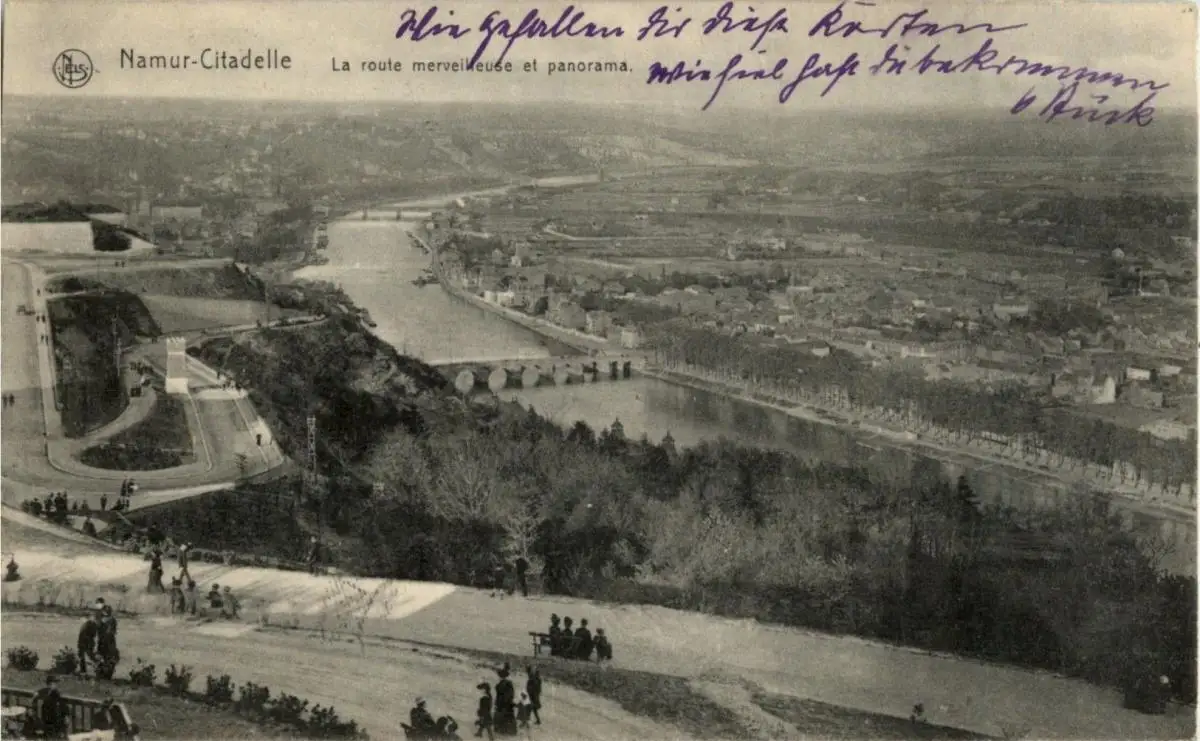 NELS
Namur-Citadelle La route merveilleuse et panorama.
Wie gefallen dir diese Karten
Wie fiel hast du bekommen
6 Stück